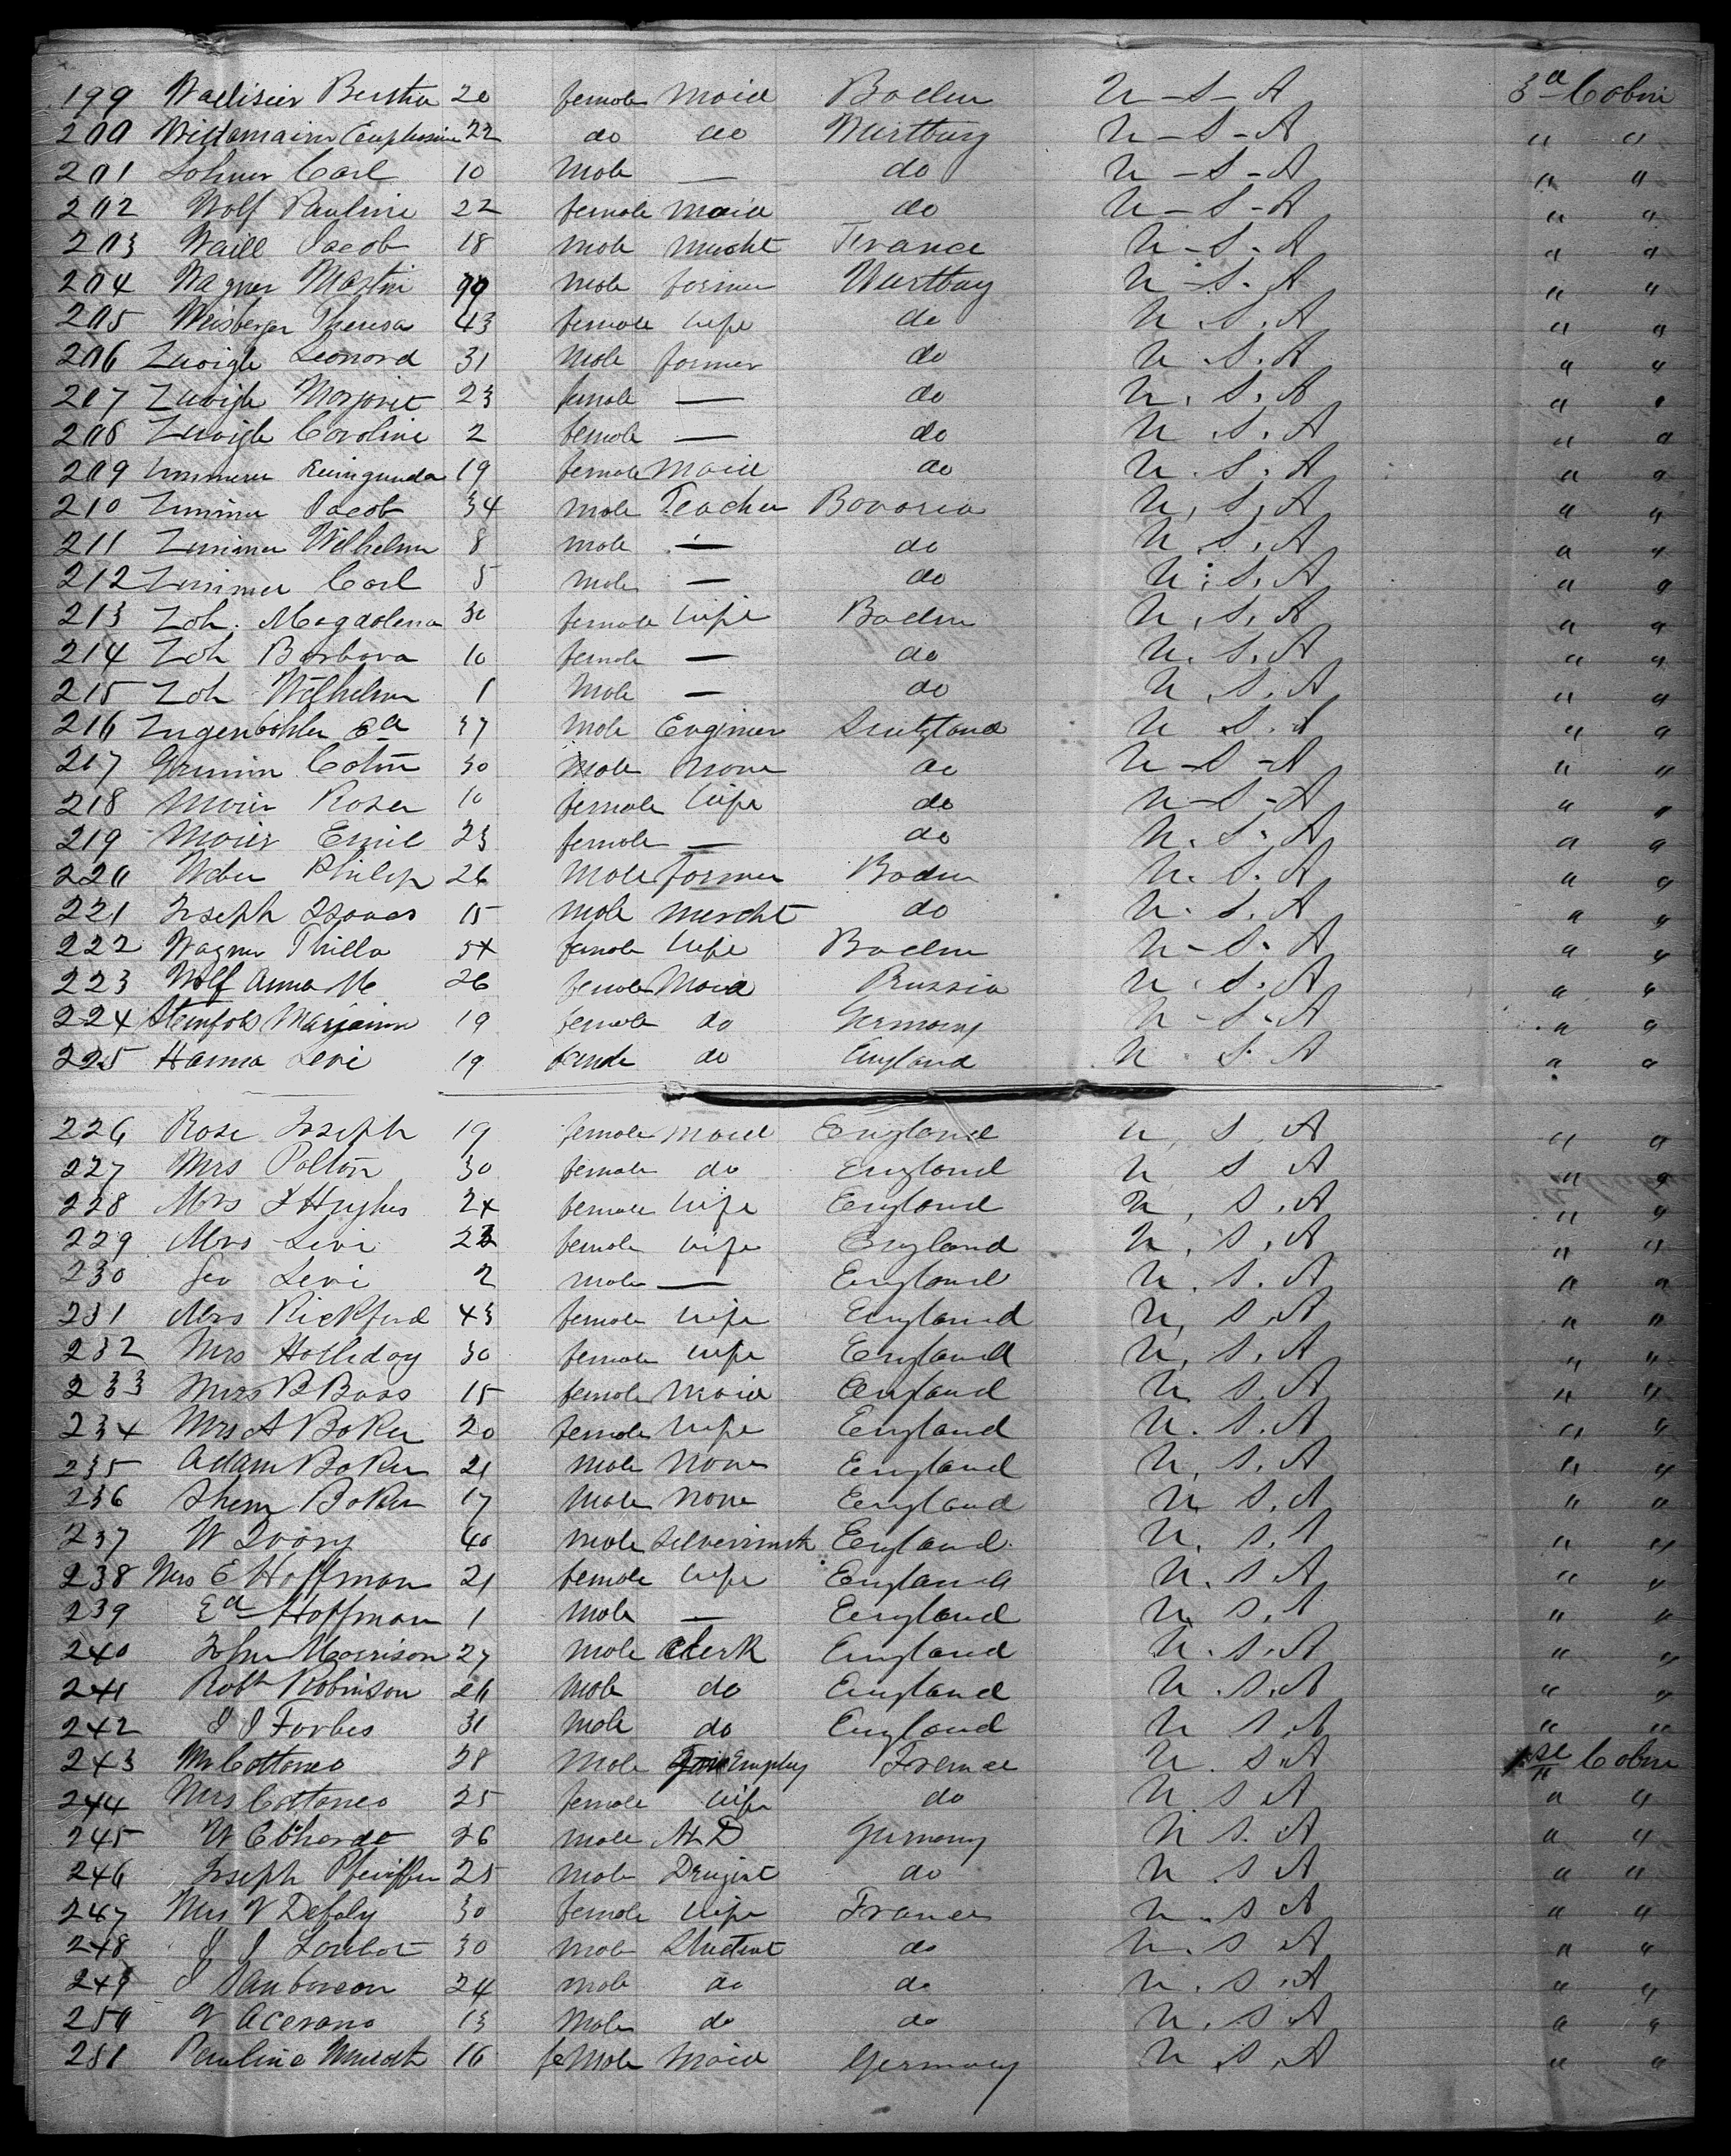 199 Bertha 20 female Maid Baden U-S-A 3d Cabin
200 22 do do Wurtburg U-S-A " "
201 Carl 10 Male — do U-S-A " "
202 Wolf Pauline 22 female Maid do U-S-A " "
203 Waill Jacob 18 Male Mercht France U-S-A " "
204 Wagner Martin Male farmer Wurtburg U-S-A " "
205 Weisberger Theresa 43 female wife do U.S.A " "
206 Zwigle Leonard 31 Male farmer do U.S.A " "
207 Zwigle Margaret 23 female — do U.S.A " "
208 Zwigle Caroline 2 female — do U.S.A " "
209 19 female Maid do U.S.A " "
210 Zimmer Jacob 34 Male Teacher Bavaria U.S.A " "
211 Zimmer Wilhelm 8 Male — do U.S.A " "
212 Zimmer Carl 5 Male — do U.S.A " "
213 Zoh. Magdalena 30 female wife Baden U.S.A " "
214 Zoh Barbara 10 female — do U.S.A " "
215 Zoh Wilhelm 1 Male — do U.S.A " "
216 37 Male Engineer Switzland U.S.A " "
217 30 Male None do U-S-A " "
218 Maier Rosa 10 female wife do U-S-A " "
219 Maier Emil 23 female — do U.S.A " "
220 Weber Philip 26 Male farmer Baden U.S.A " "
221 Joseph Isaaas 15 Male Mercht do U.S.A " "
222 Wagner Thilla 54 female wife Baden U-S-A " "
223 Wolf Anna M 26 female Maid Prussia U.S.A " "
224 19 female do Germany U-S-A " "
225 Hanna Levi 19 female do England U.S.A " "
226 Rose Joseph 19 female Maid England U.S.A " "
227 Mrs Polton 30 female do England U.S.A " "
228 Mrs J Hughes 24 female wife England U.S.A " "
229 Mrs Levi female wife England U.S.A " "
230 Geo Levi 2 Male — England U.S.A " "
231 Mrs Rickford 43 female wife England U.S.A " "
232 Mrs Holliday 30 female wife England U.S.A " "
233 B Bass 15 female Maid England U.S.A " "
234 Mrs A Baker 20 female wife England U.S.A " "
235 Adam Baker 21 Male None England U.S.A " "
236 Baker 17 Male None England U.S.A " "
237 W Ivory 40 Male Silversmith England U.S.A " "
238 Mrs E Hoffman 21 female wife England U.S.A " "
239 Ed Hoffman 1 Male — England U.S.A " "
240 John Morrison 27 Male Clerk England U.S.A " "
241 Robt Robinson Male do England U.S.A " "
242 J J Forbes 31 Male do England U.S.A " "
243 Mr Cottaneo 28 Male France U.S.A 1st Cabin
244 Mrs Cottaneo 25 female wife do U.S.A " "
245 W 26 Male M D Germany U.S.A " "
246 Joseph Pfeiffer 25 Male Drugist do U.S.A " "
247 V Defaly 30 female wife France U.S.A " "
248 J J Loubat 30 Male Student do U.S.A " "
249 24 Male do do U.S.A " "
250 V Acerano 13 Male do do U.S.A " "
251 Pauline 16 female Maid Germany U.S.A " "